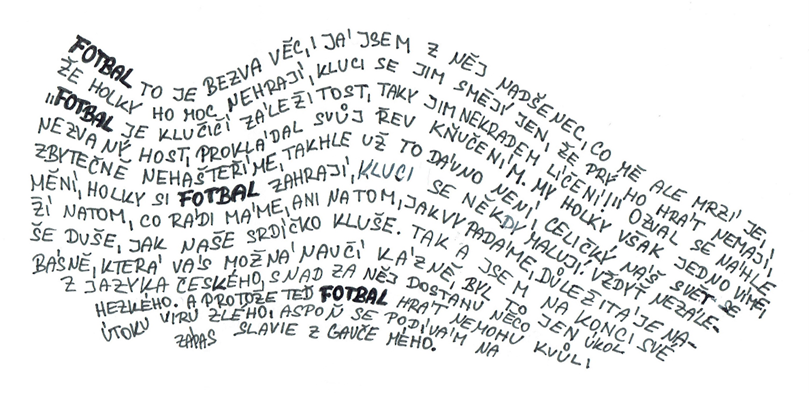 FOTBAL TO JE BEZVA VĚC, I JÁ JSEM Z NĚJ NADŠENEC, CO MĚ ALE MRZÍ JE,
ŽE HOLKY HO MOC NEHRAJÍ, KLUCI SE JIM SMĚJÍ JEN, ŽE PRÝ HO HRÁT NEMAJÍ,
„FOTBAL JE KLUČIČÍ ZÁLEŽITOST, TAKY JIM NEKRADEM LÍČENÍ!" OZVAL SE NÁHLE
NEZVANÝ HOST, PROKLÁDAL SVŮJ ŘEV KŇUČENÍM. MY HOLKY VŠAK JEDNO VÍME,
ZBYTEČNĚ NEHAŠTEŘÍME, TAKHLE UŽ TO DÁVNO NENÍ, CELIČKÝ NÁŠ SVĚT SE
MĚNÍ, HOLKY SI FOTBAL ZAHRAJÍ, KLUCI SE NĚKDY MALUJÍ. VŽDYŤ NEZÁLE-
ŽÍ NATOM, CO RÁDI MÁME, ANI NATOM, JAK VYPADÁME, DŮLEŽITÁ JE NA-
ŠE DUŠE, JAK NAŠE SRDÍČKO KLUŠE. TAK A JSEM NA KONCI SVÉ
BÁSNĚ, KTERÁ VÁS MOŽNÁ NAUČÍ KÁZNĚ, BYL TO JEN ÚKOL
Z JAZYKA ČESKÉHO, SNAD ZA NĚJ DOSTANU NĚCO
HEZKÉHO. A PROTOŽE TEĎ FOTBAL HRÁT NEMOHU KVŮLI
ÚTOKU VIRU ZLÉHO, ASPOŇ SE PODÍVÁM NA
ZÁPAS SLAVIE Z GAUČE MÉHO.